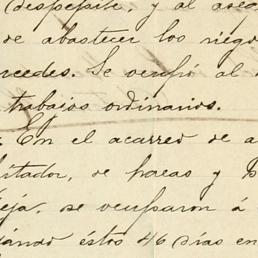 despepite, y al aseo
de abastecer los riego
rcedes. Se ocupó al
trabajos ordinarios.
En el acarreo de a
litador, de hacas y
eja, se ocuparon á
éstos 46 días en